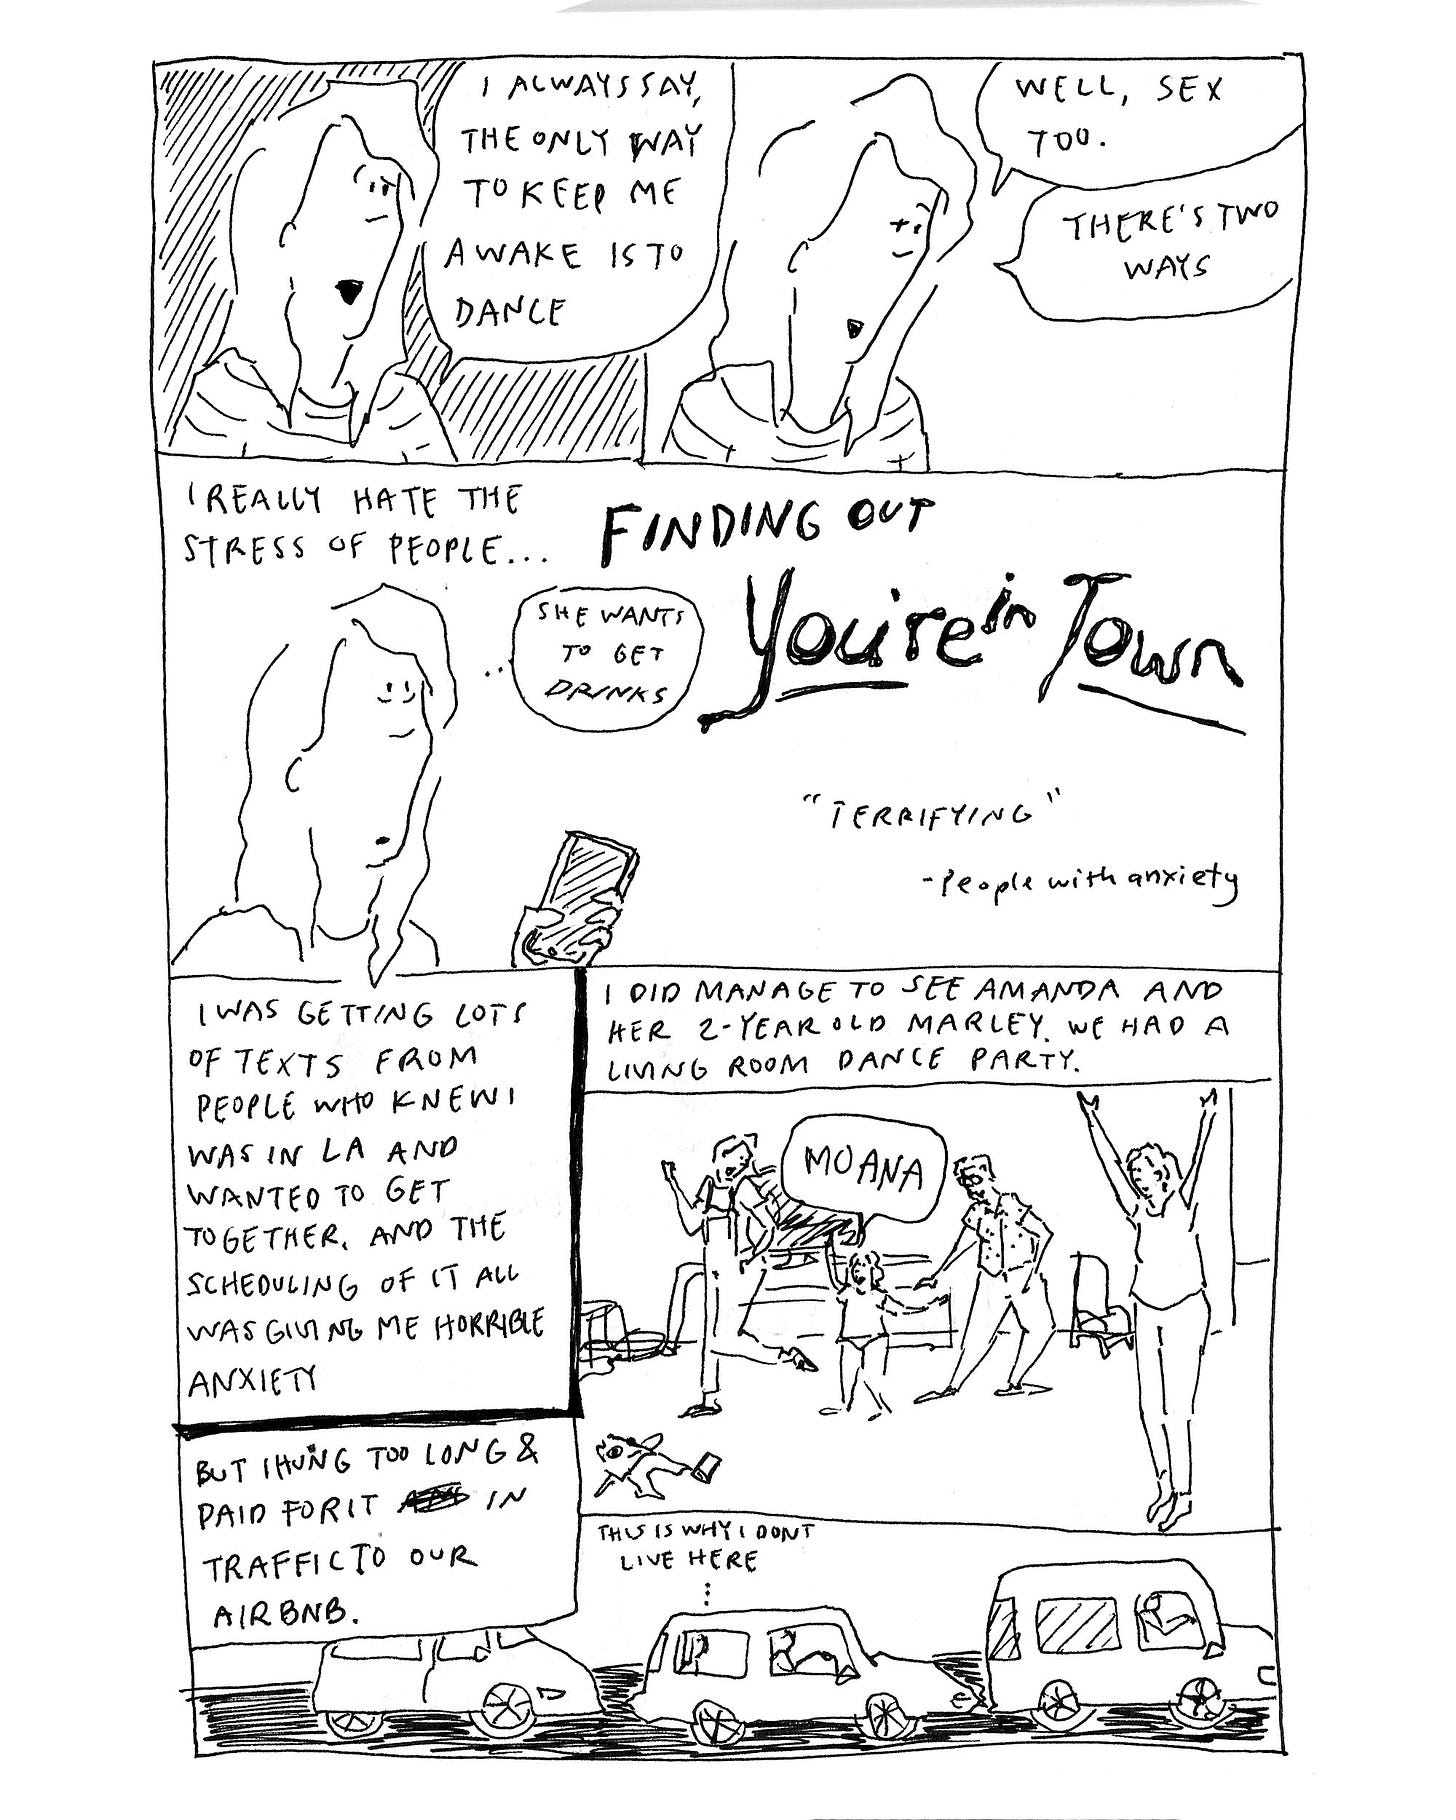 I ALWAYS SAY,
THE ONLY WAY
TO KEEP ME
AWAKE IS TO
DANCE
WELL, SEX
TOO.
THERE'S TWO
WAYS
I REALLY HATE THE
STRESS OF PEOPLE...
FINDING OUT
You're in Town
SHE WANTS
TO GET
DRINKS
"TERRIFYING"
-People with anxiety
I WAS GETTING LOTS
OF TEXTS FROM
PEOPLE WHO KNEW I
WAS IN LA AND
WANTED TO GET
TOGETHER. AND THE
SCHEDULING OF IT ALL
WAS GIVING ME HORRIBLE
ANXIETY
I DID MANAGE TO SEE AMANDA AND
HER 2-YEAR OLD MARLEY. WE HAD A
LIVING ROOM DANCE PARTY.
MOANA
BUT I HUNG TOO LONG &
PAID FOR IT IN
TRAFFIC TO OUR
AIRBNB.
THIS IS WHY I DONT
LIVE HERE